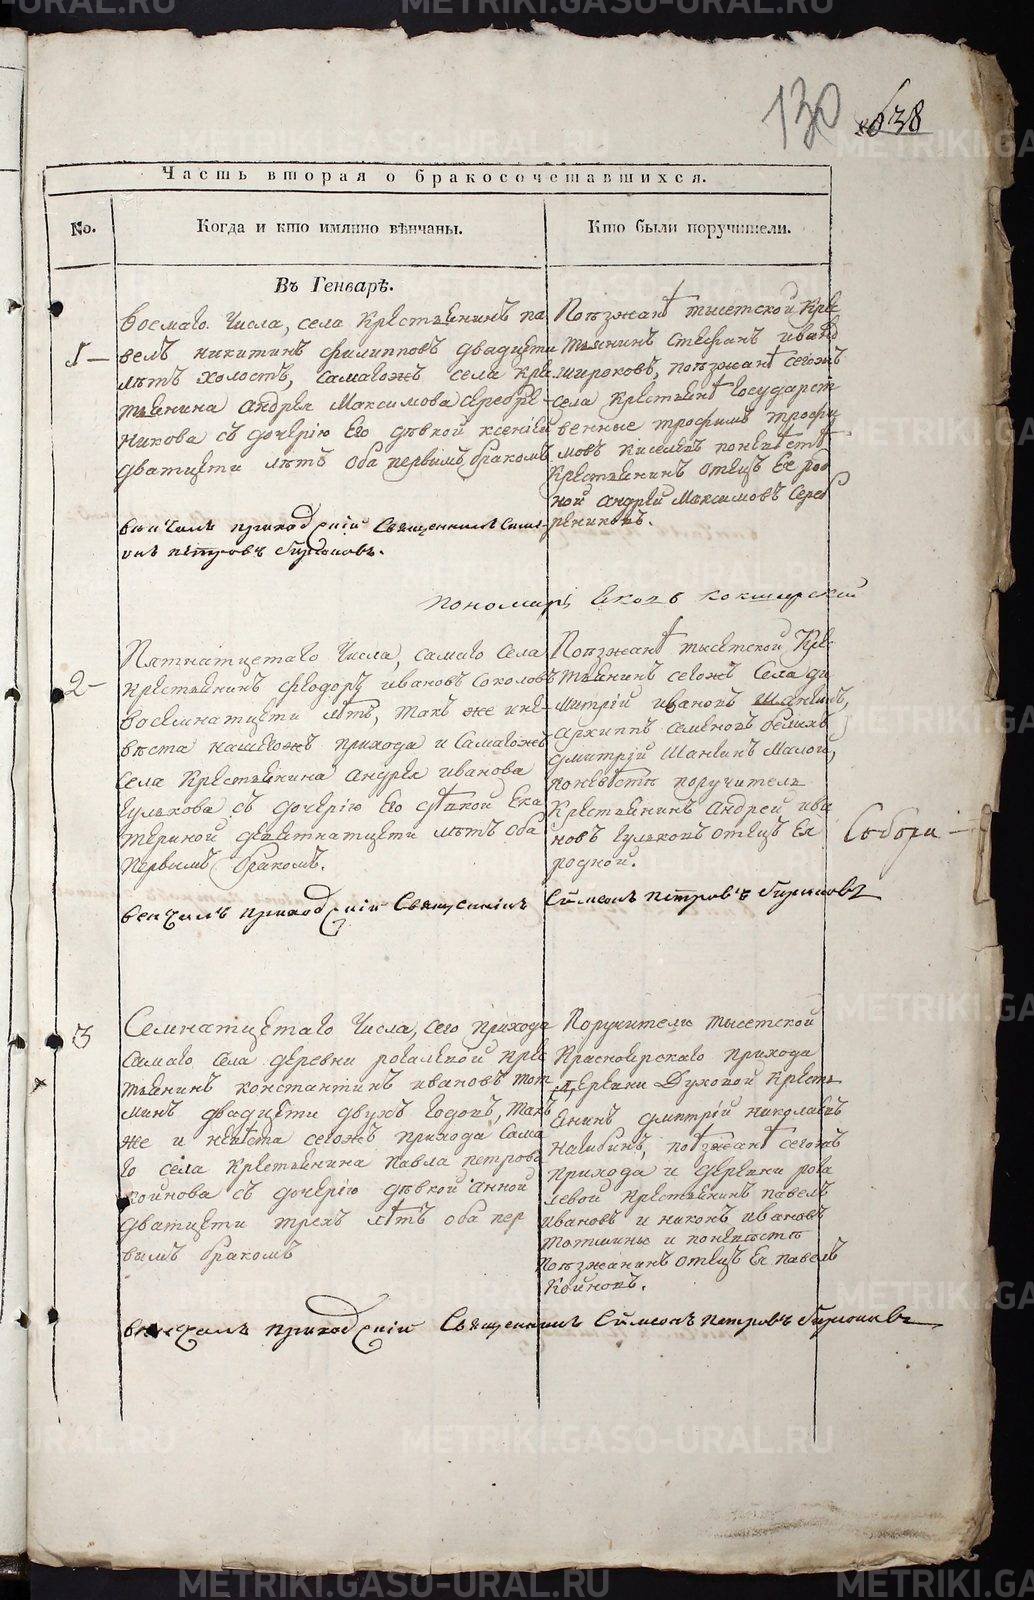 130 638
Часть вторая о бракосочетавшихся.
No.
Когда и кто имянно вѣнчаны.
Кто были поручители.
Въ Генварѣ.
1
восмаго числа, села Крестьянинъ па
велъ никитинъ филипповъ двадцети
лѣтъ холостъ, самагожъ села кре
стьянина андрея Максимова серебре
никова съ дочерію Его дѣвкой ксеніей
дватцети лѣтъ оба первымъ бракомъ
венчалъ приходскій Священникъ Симе
онъ петровъ
Поѣзжанѣ тысетской Кре
стьянинъ Стефанъ ивано
широковъ, поѣзжанѣ сегожъ
села Крестьянѣ государст
венные трофимъ трофи
мовъ киселевъ поневѣстѣ
Крестьянинъ отецъ Ее род
ной андрей Максимовъ Сереб
рениковъ.
пономарь Яковъ кокшарский
2
Пятнатцетаго числа, самаго села
Крестьянинъ Феодоръ ивановъ Соколовъ
восемнатцети лѣтъ, такъ же и не
вѣста нашегожъ прихода и самагожъ
села Крестьянина андрея иванова
гулькова съ дочерію Его дѣвкой Ека
териной девятнатцети лѣтъ оба
первымъ бракомъ.
Поѣзжанѣ тысетской Кре
стьянинъ сегожъ Села ди
митрій ивановъ шангинъ,
архиппъ семеновъ бѣлыхъ
дмитрій Шангинъ Малой,
поневѣстѣ поручитель
Крестьянинъ Андрей ива
новъ гульковъ отецъ Ея
родной.
венчалъ приходскій Священникъ Сѵмеонъ петровъ
3
Семнатцетаго числа, сего прихода
самаго села деревни рогалевой кре
стьянинъ константинъ ивановъ тот
минъ двадцети двухъ годовъ, такъ
же и невѣста сегожъ прихода Сама
го села Крестьянина Павла петрова
койнова съ дочерію дѣвкой анной
дватцети трехъ лѣтъ оба пер
вымъ бракомъ
Поручители тысетской
Красноярскаго прихода
деревни Духовой Кресть
янинъ дмитрій николаевъ
нагибинъ, поѣзжанѣ сегожъ
прихода и деревни рога
левой Крестьянинъ павелъ
ивановъ и никонъ ивановъ
тотмины и поневѣстѣ
Поѣзжанинъ отецъ Ее павелъ
Койновъ.
венчалъ приходскій Священникъ Сѵмеонъ петровъ
METRIKI.GASO-URAL.RU